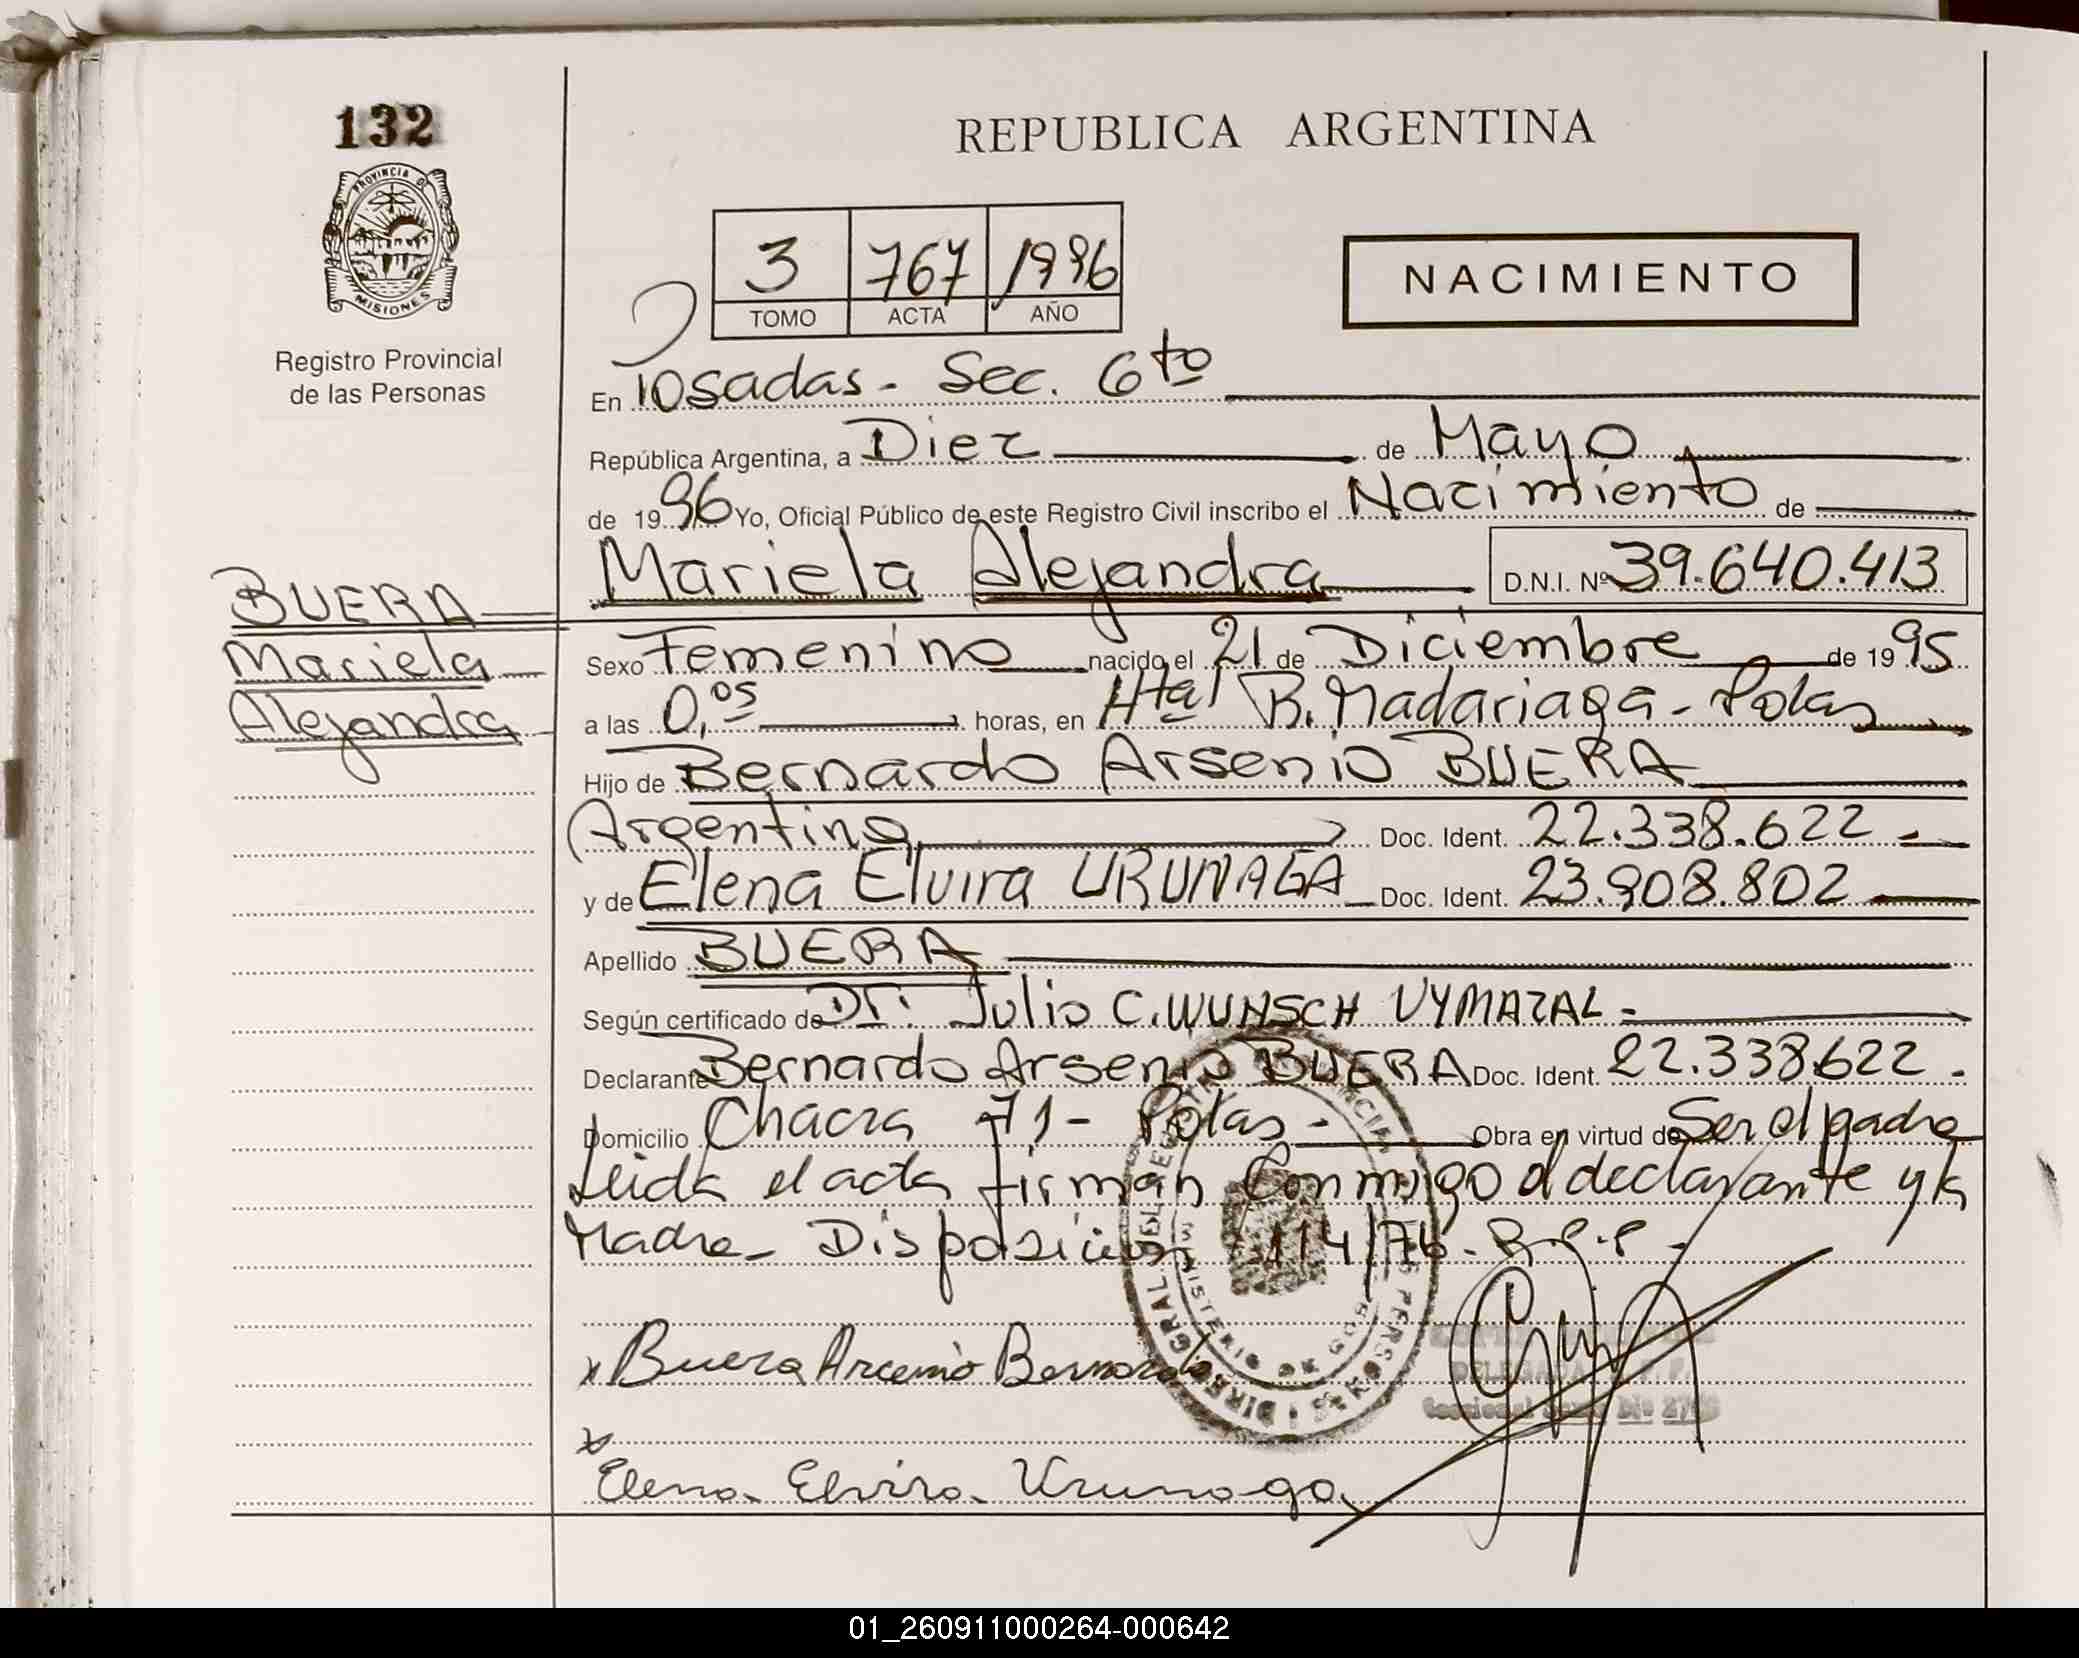 132
PROVINCIA DE
MISIONES
Registro Provincial
de las Personas
REPUBLICA ARGENTINA
3 767 1996
TOMO ACTA AÑO
NACIMIENTO
En Posadas - Sec. 6to
República Argentina, a Diez de Mayo
de 1996 Yo, Oficial Público de este Registro Civil inscribo el Nacimiento de
Mariela Alejandra D.N.I. Nº 39.640.413
BUERA
Mariela
Alejandra
Sexo Femenino nacido el 21 de Diciembre de 1995
a las 0,05 horas, en Htal R. Madariaga - Pdas
Hijo de Bernardo Arsenio BUERA
Argentino Doc. Ident. 22.338.622
y de Elena Elvira URUNAGA Doc. Ident. 23.908.802
Apellido BUERA
Según certificado de Dr. Julio C. WUNSCH VYMAZAL
Declarante Bernardo Arsenio BUERA Doc. Ident. 22.338.622
Domicilio Chacra 71 - Pdas - Obra en virtud de Ser el padre
Leida el acta firman Conmigo el declarante y la
Madre - Disposicion 114/76 - R.P.P -
x Buera Arcenio Bernardo
DELEGADA
x
Elena Elvira Urunaga
01_260911000264-000642